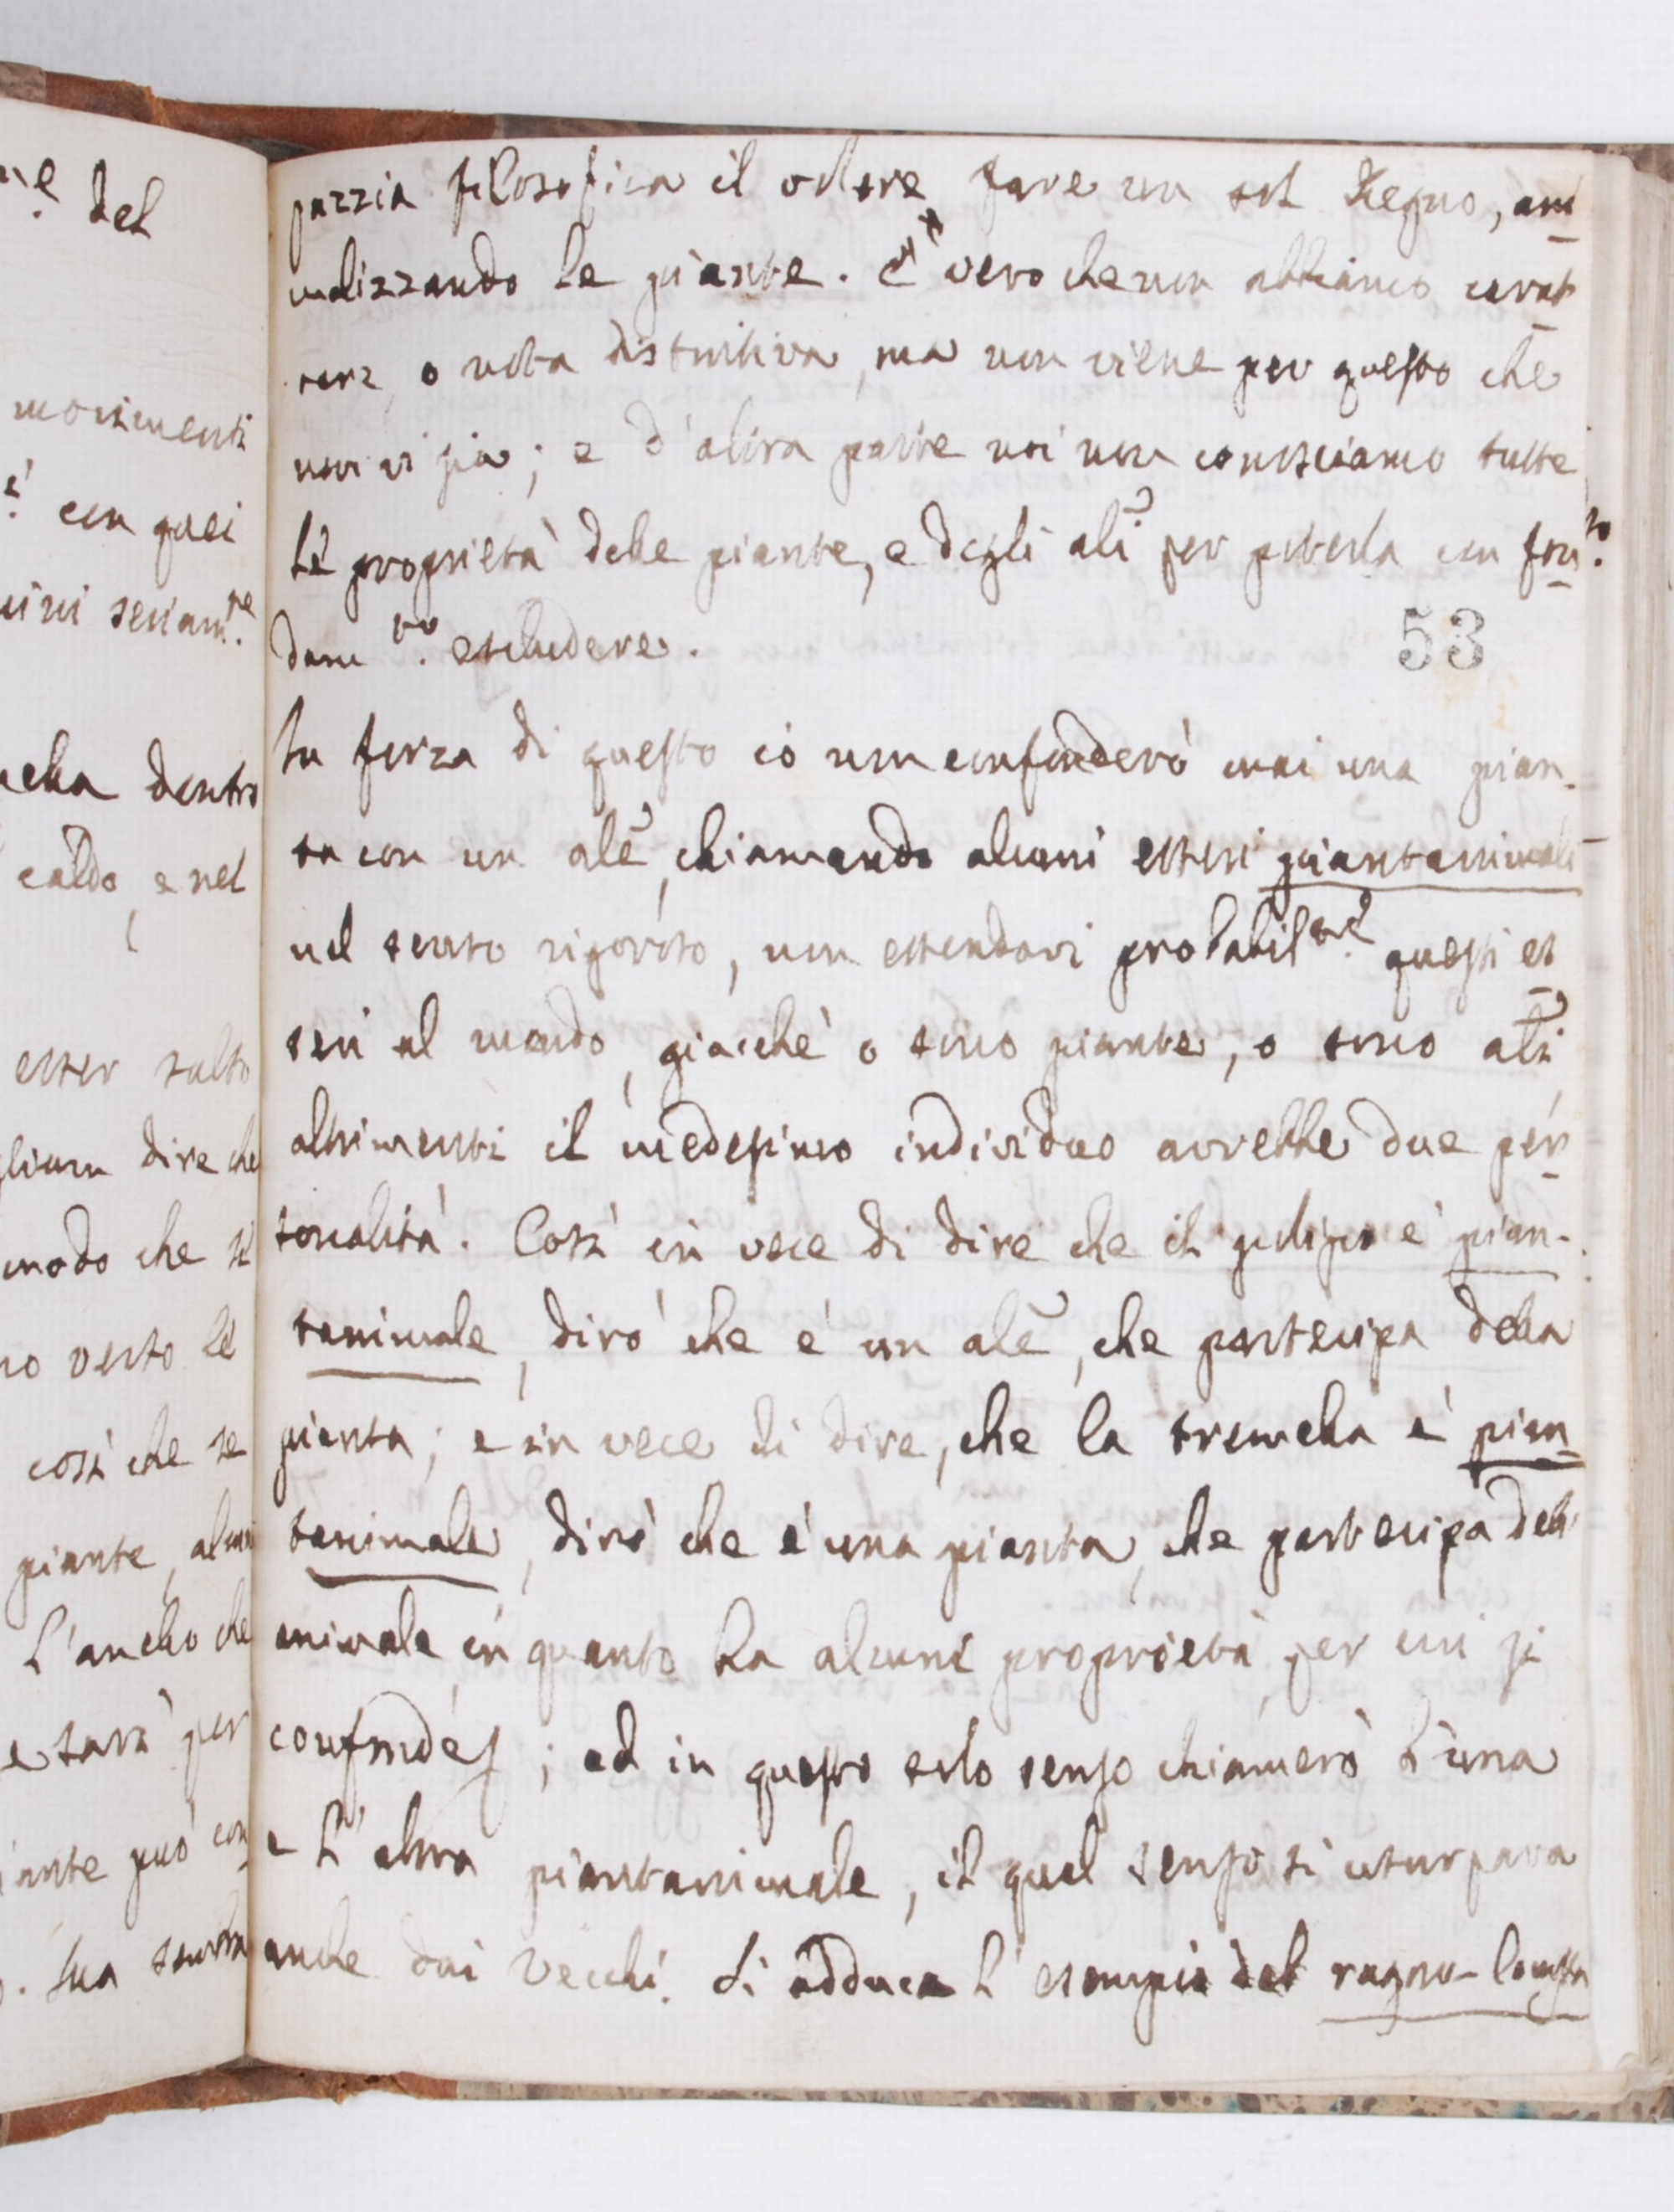 n.e del
movimenti
è con quei
vivi seriam.te
nella dentro
caldo, e nel
esser salto
gliam dire che
modo che si
no verso le
così che se
piante, alcuni
l'anello che
e sarà per
piante può con
. Sua
pazzia filosofica il volere fare un sol Regno, ani
malizzando le piante. È vero che non abbiamo carat
tere, o nota distintiva, ma non viene per questo che
non vi sia; e d'altra parte noi non conosciamo tutte
le proprietà delle piante, e degli ali per poterla con fon
dam.to escludere.
53
In forza di questo io non confonderò mai una pian-
ta con un ale, chiamando alcuni esseri piantanimali
nel senso rigoroso, non essendovi probabil.me questi es
seri al mondo, giacchè o sono piante, o sono ali
altrimenti il medesimo individuo avrebbe due per
sonalità. Così in vece di dire che il polipo è pian-
tanimale, dirò che è un ale, che partecipa della
pianta; e in vece di dire, che la tremella è pian
tanimale, dirò che è una pianta, che partecipa dell'
animale, in quanto ha alcune proprietà, per cui si
confondes; ed in questo solo senso chiamerò l'una
e l'altra piantanimale, il qual senso si usurpava
anche dai vecchi. Si adduce l'esempio del ragno-locusta